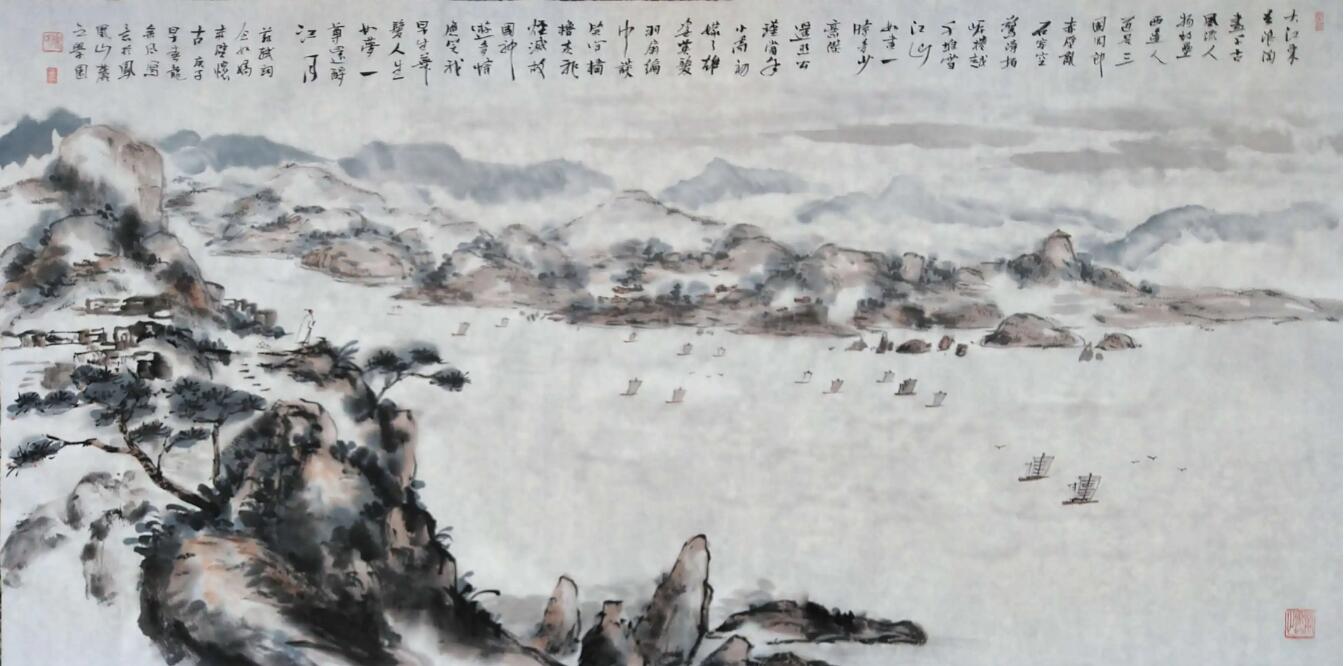 大江東
去浪淘
盡千古
風流人
物故壘
西邊人
道是三
國周郎
赤壁亂
石穿空
驚濤拍
岸捲起
千堆雪
江山
如畫一
時多少
豪傑
遙想公
瑾當年
小喬初
嫁了雄
姿英發
羽扇綸
巾談
笑間檣
櫓灰飛
煙滅故
國神
遊多情
應笑我
早生華
髮人生
如夢一
尊還酹
江月
蘇軾詞
念奴嬌
赤壁懷
古 庚子
早春龍
於鳳
凰山麓
之學園